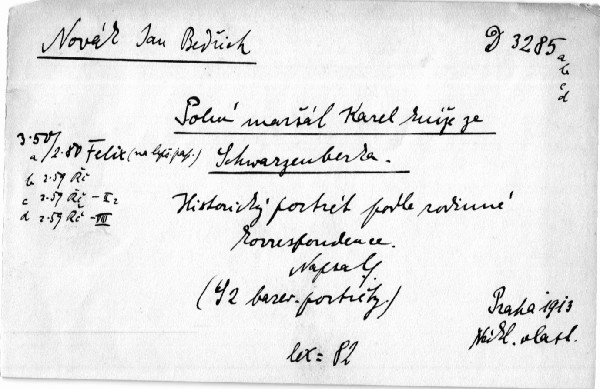 Novák Jan Bedřich
D 3285 a
b
c
d
Polní maršál Karel kníže ze
Schwarzenberka.
3.50/
a/2.80 Felix (na lepš. pap.)
b 2.59 Kč
c 2.59 Kč - II2
d 2.59 Kč - III
Historický portrét podle rodinné
korrespondence.
Napsal J.
(S 2 barev. portréty.)
Praha 1913
Nákl. vlastl.
lex = 82